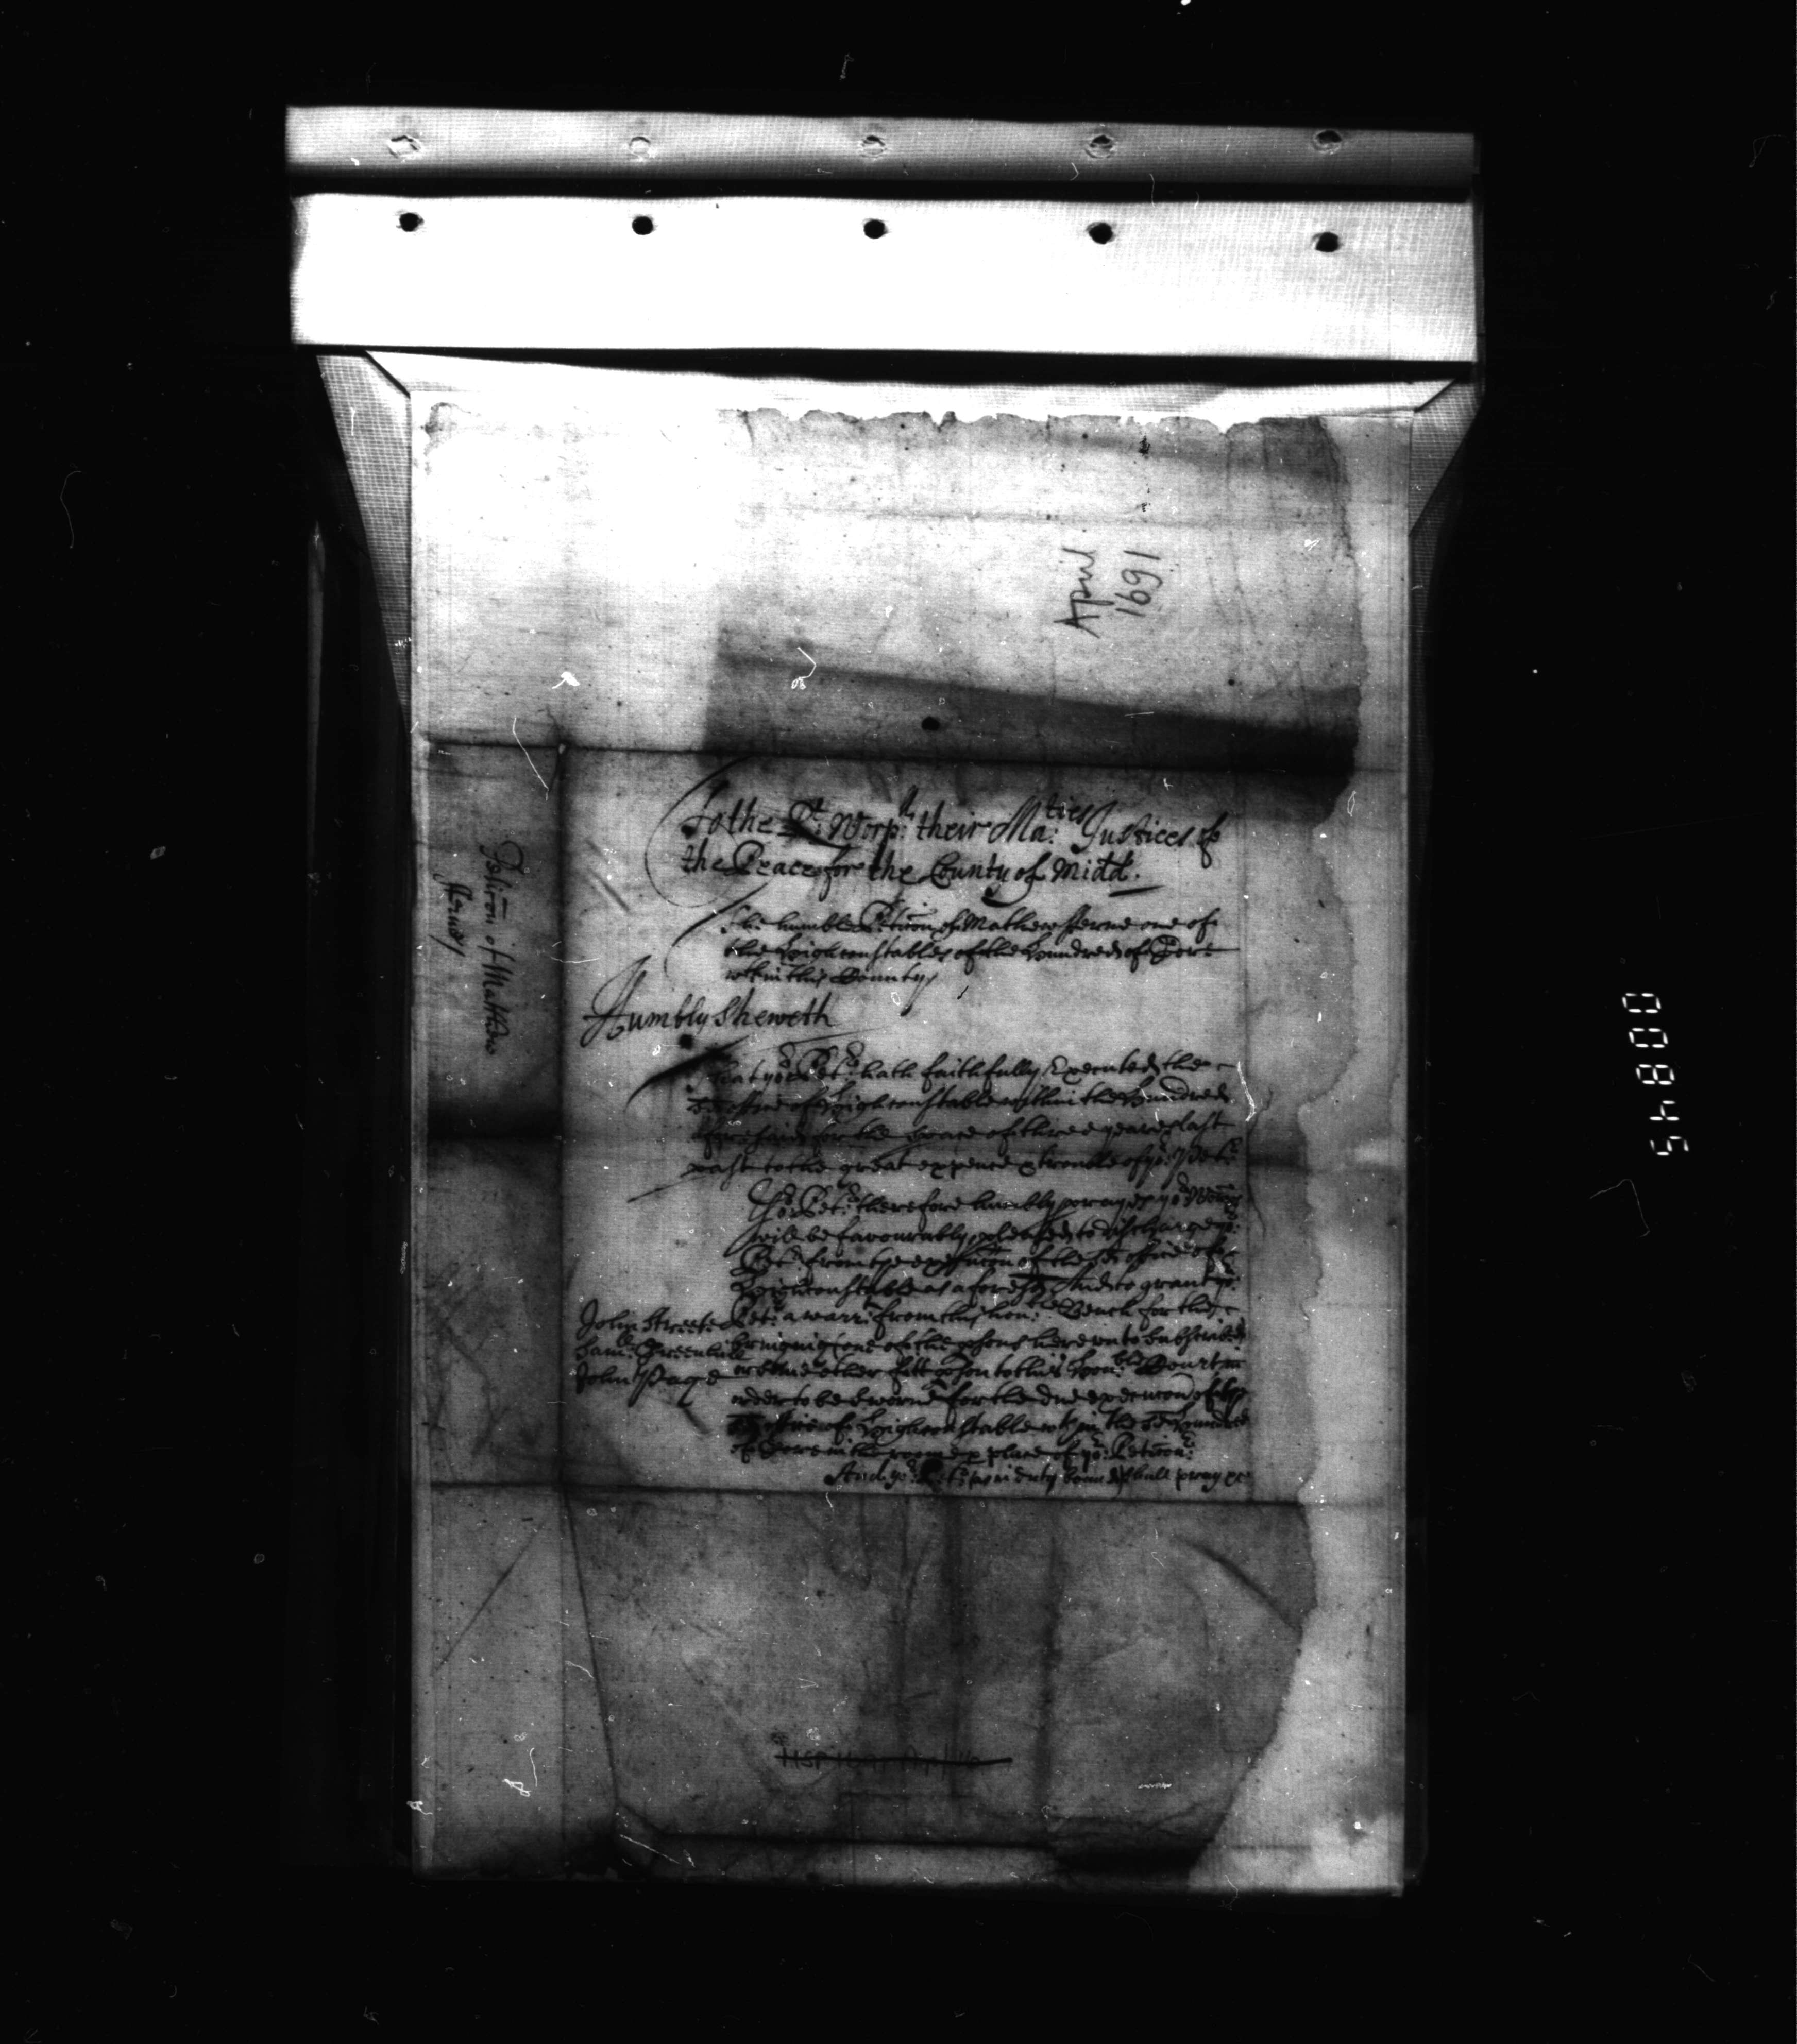 April
1691
To the Rt. Worpll. their Maties. Justices of
the Peace for the County of Midd.
The humble Peticon of Mathew fferne one of
the High constables of the Hundred of Gore
within this County
Humbly Sheweth
That yor Petr. hath faithfully Executed the
office of High constable within the Hundred
aforesaid for the space of three yeares last
past to the great expence & trouble of yor. Petr.
Yor Petr. therefore humbly prayes yor Worpps
will be favourably pleased to discharge yor.
Petr. from the execucon of the sd office of
High constable as aforesd. And to grant yor.
Petr. a warrt. from this honble. Bench for the
bringing one of the psons hereunto Subscribed
or some other fitt pson to this Honble. Court in
order to be sworne for the due execucon of the
sd office of High constable wthin the sd Hundred
of Gore in the roome & place of yor. Peticonr.
And yor. Petr. as in duty bound shall pray &c
John Streete
Saml. Greenhill
John Page
Peticon of Mathew
fferne
00845